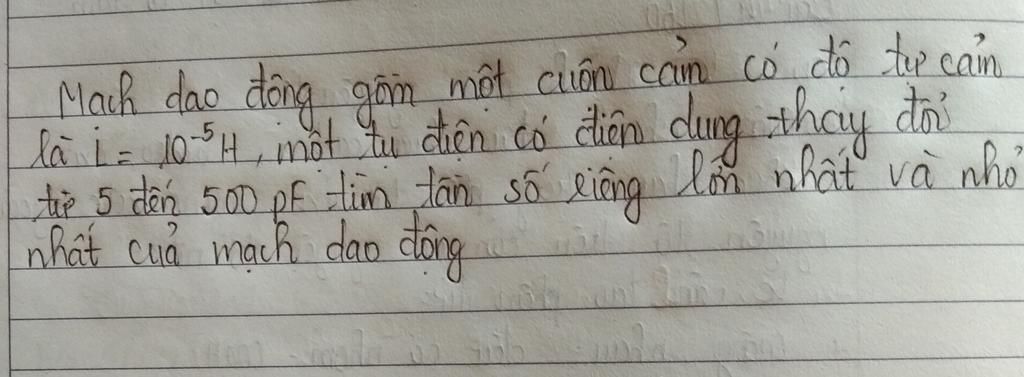 Mạch dao động gồm một cuộn cảm có độ tự cảm
là L = 10⁻⁵H, một tụ điện có điện dung thay đổi
từ 5 đến 500 pF tìm tần số riêng lớn nhất và nhỏ
nhất của mạch dao động